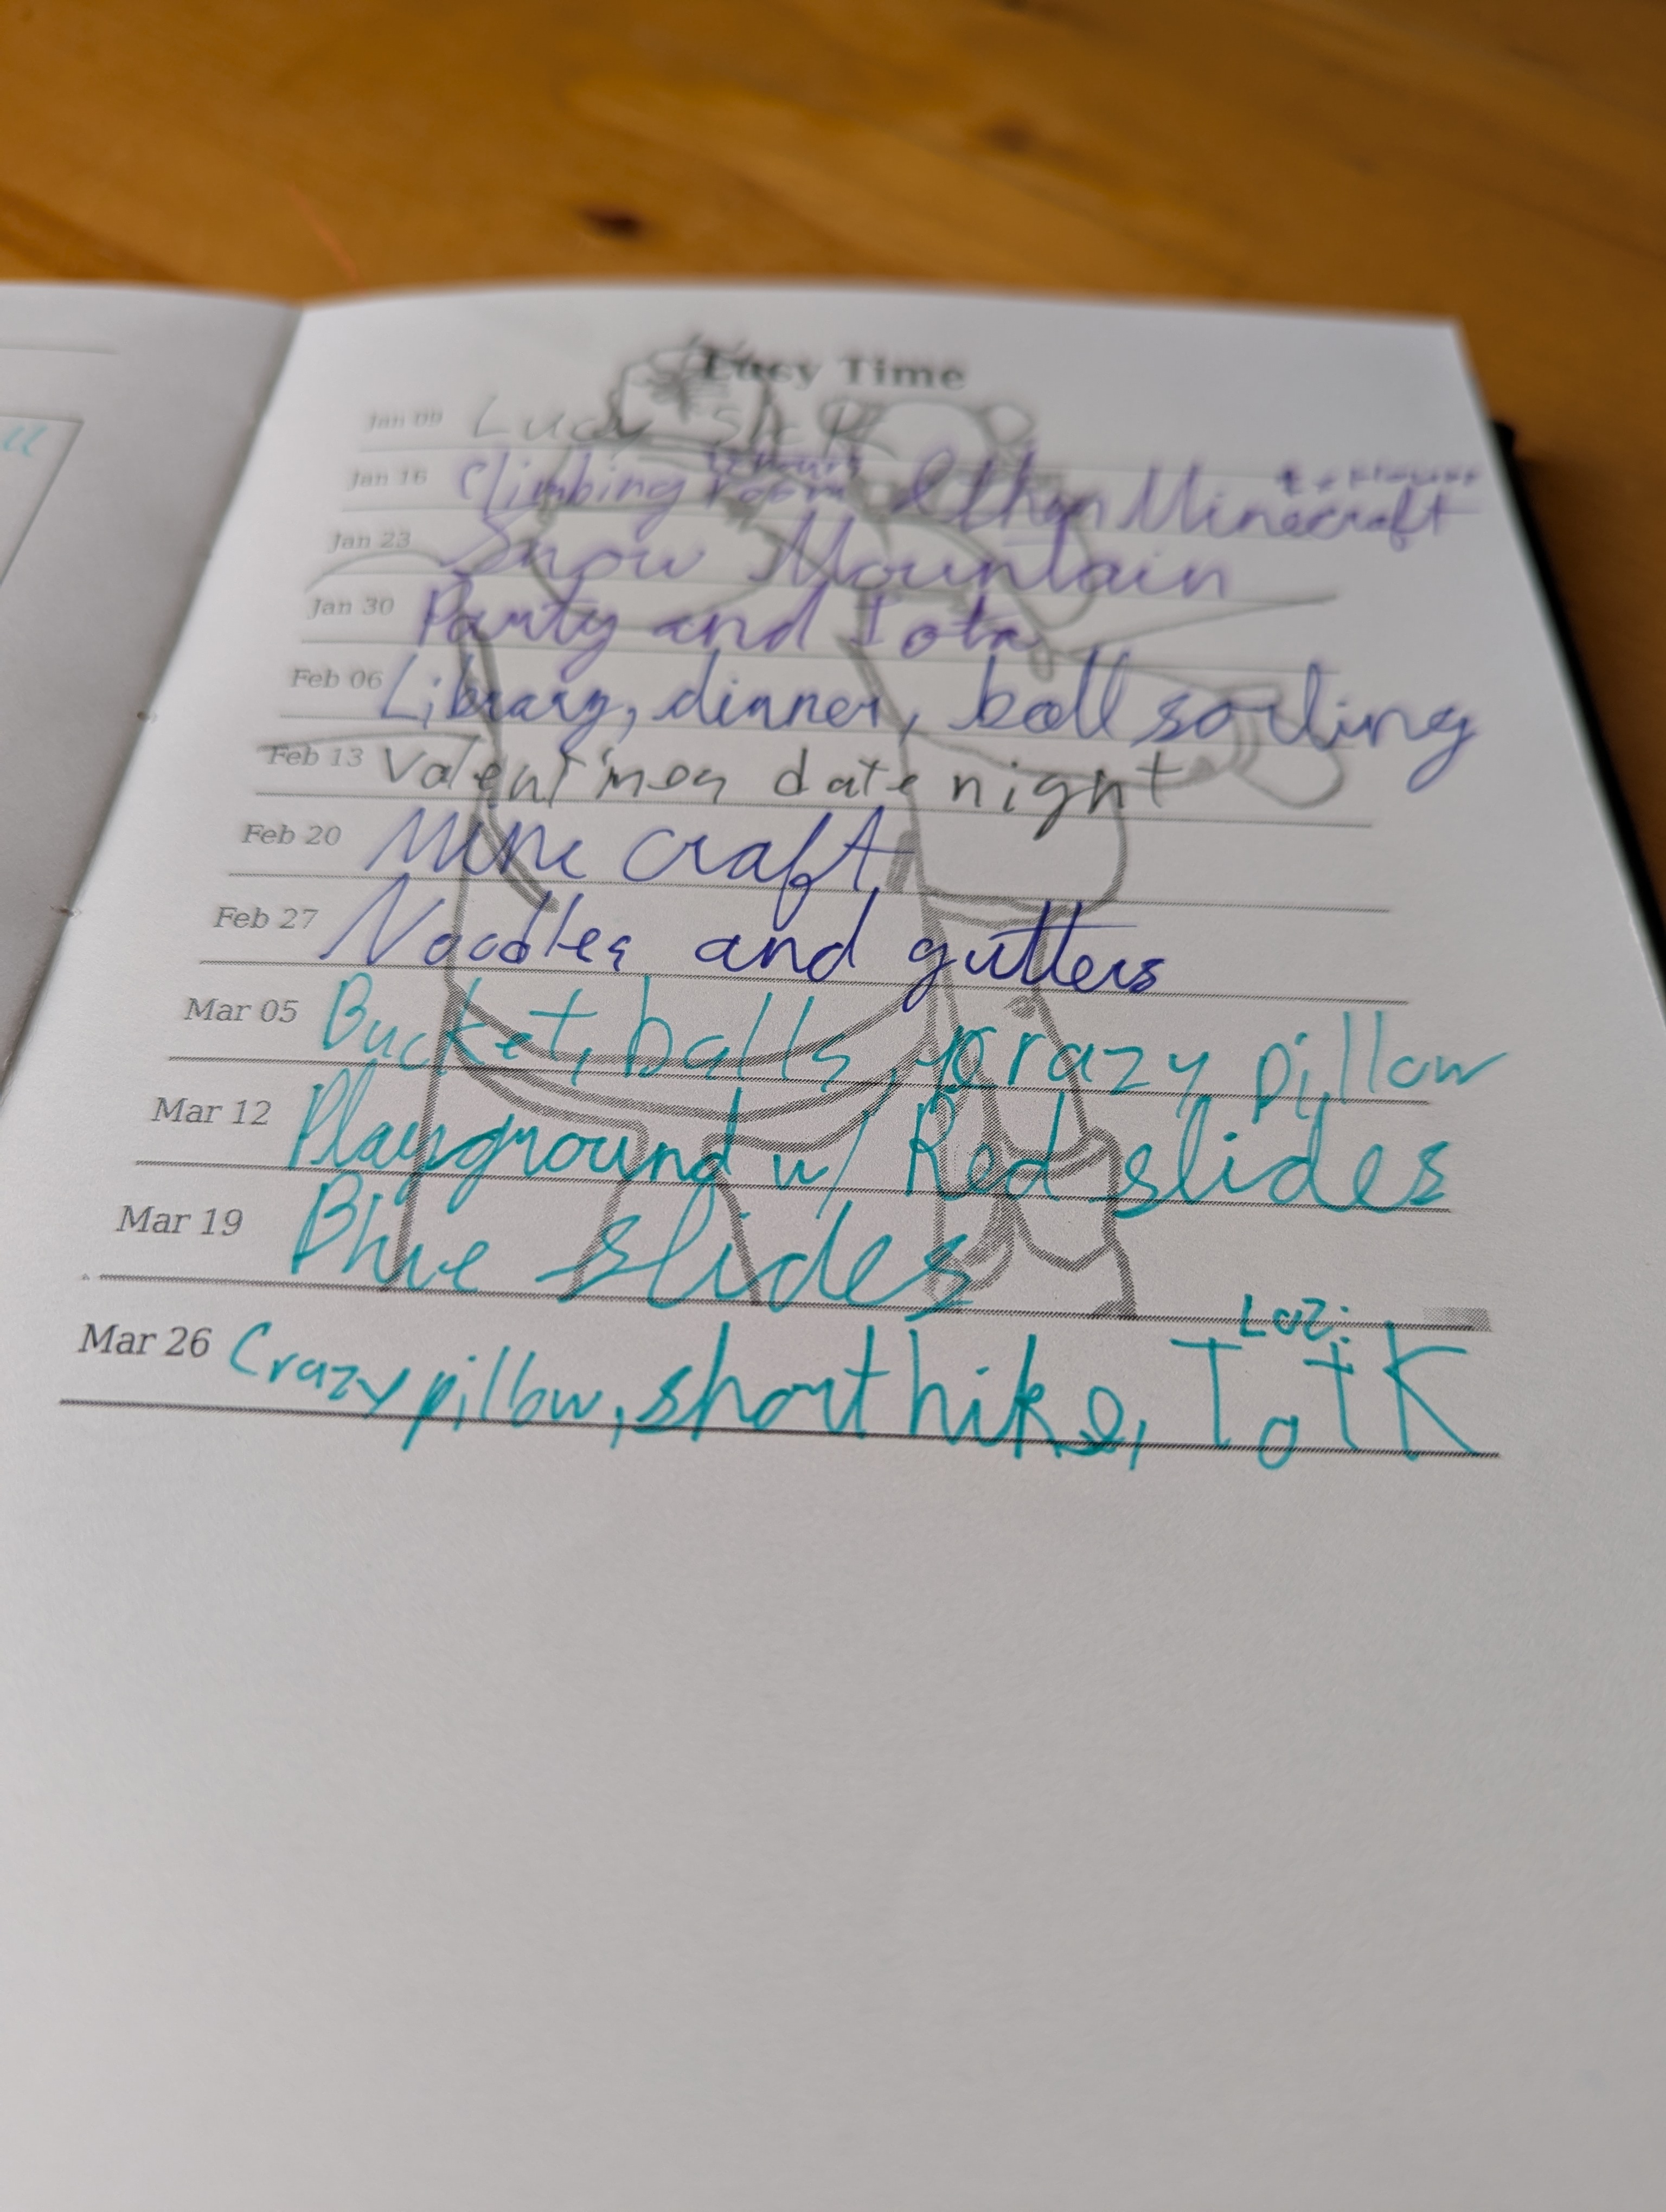 Lucy Time
Jan 09 Lucy sick
Jan 16 Climbing room & then Minecraft
Jan 23 Snow Mountain
Jan 30 Party and Iota
Feb 06 Library, dinner, ball sorting
Feb 13 Valentines date night
Feb 20 Mine craft
Feb 27 Noodles and gutters
Mar 05 Bucket, balls, crazy pillow
Mar 12 Playground w/ Red slides
Mar 19 Blue slides
LoZ:
Mar 26 Crazy pillow, short hike, TotK